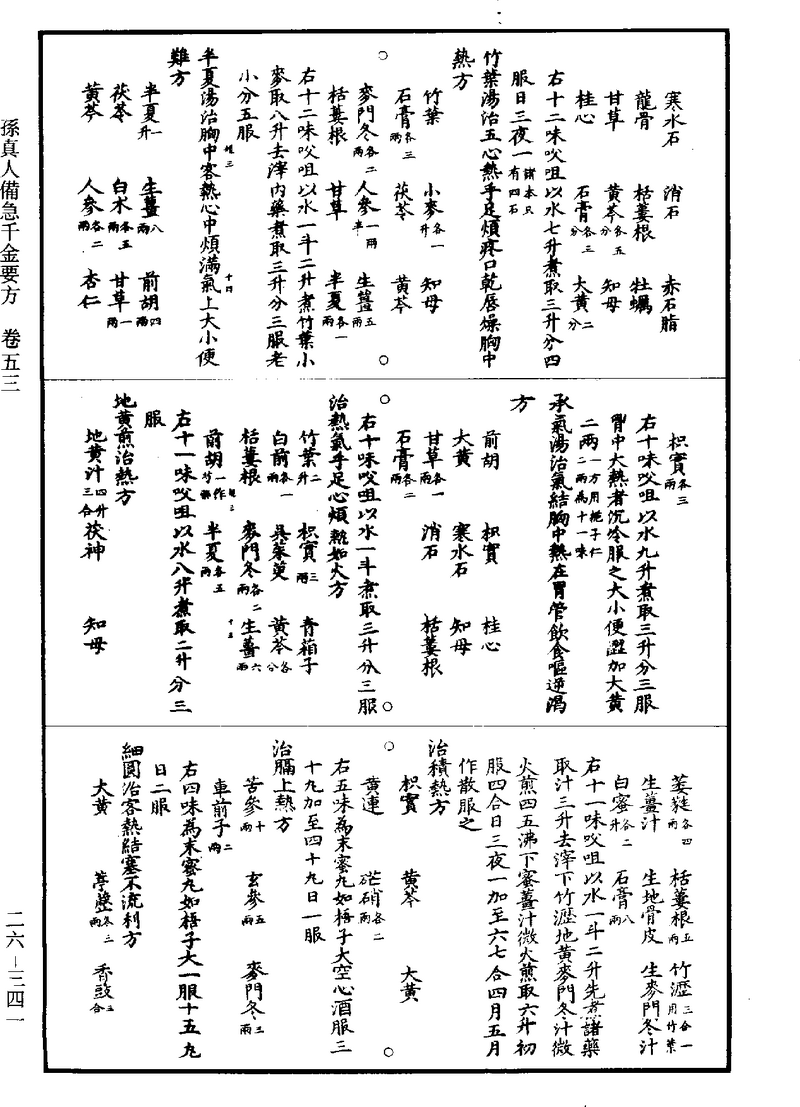 孫真人備急千金要方　卷五三
寒水石　消石　赤石脂
龍骨　栝蔞根　牡蠣
甘草　黃芩各五分　知母
桂心　石膏各三分　大黃二分
右十二味㕮咀以水七升煮取三升分四
服日三夜一諸本只有四石
竹葉湯治五心熱手足煩疼口乾唇燥胸中
熱方
竹葉　小麥各一升　知母
石膏各三兩　茯苓　黃芩
麥門冬各二兩　人參一兩半　生薑五兩
栝蔞根　甘草　半夏各一兩
右十二味㕮咀以水一斗二升煮竹葉小
麥取八升去滓內藥煮取三升分三服老
小分五服
半夏湯治胸中客熱心中煩滿氣上大小便
難方
半夏一升　生薑八兩　前胡四兩
茯苓　白朮各五兩　甘草一兩
黃芩　人參各二兩　杏仁
枳實各三兩
右十味㕮咀以水九升煮取三升分三服
胃中大熱者沉冷服之大小便澀加大黃
二兩一方用梔子仁二兩為十一味
承氣湯治氣結胸中熱在胃管飲食嘔逆渴
方
前胡　枳實　桂心
大黃　寒水石　知母
甘草各一兩　消石　栝蔞根
石膏各二兩
右十味㕮咀以水一斗煮取三升分三服
治熱氣手足心煩熱如火方
竹葉二升　枳實三兩　青葙子
白前各一兩　吳茱萸　黃芩各分
栝蔞根　麥門冬各二兩　生薑六兩
前胡一作　半夏各五兩
右十一味㕮咀以水八升煮取二升分三
服
地黃煎治熱方
地黃汁四升三合　茯神　知母
萎蕤各四兩　栝蔞根五兩　竹瀝三合一用竹葉
生薑汁　生地骨皮　生麥門冬汁
白蜜各二升　石膏八兩
右十一味㕮咀以水一斗二升先煮諸藥
取汁三升去滓下竹瀝地黃麥門冬汁微
火煎四五沸下蜜薑汁微火煎取六升初
服四合日三夜一加至六七合四月五月
作散服之
治積熱方
枳實　黃芩　大黃
黃連　芒硝各二兩
右五味為末蜜丸如梧子大空心酒服三
十九加至四十九日一服
治膈上熱方
苦參十兩　玄參五兩　麥門冬三兩
車前子二兩
右四味為末蜜丸如梧子大一服十五丸
日二服
細圓治客熱結塞不流利方
大黃　葶藶各三兩　香豉三合
二六–三四一